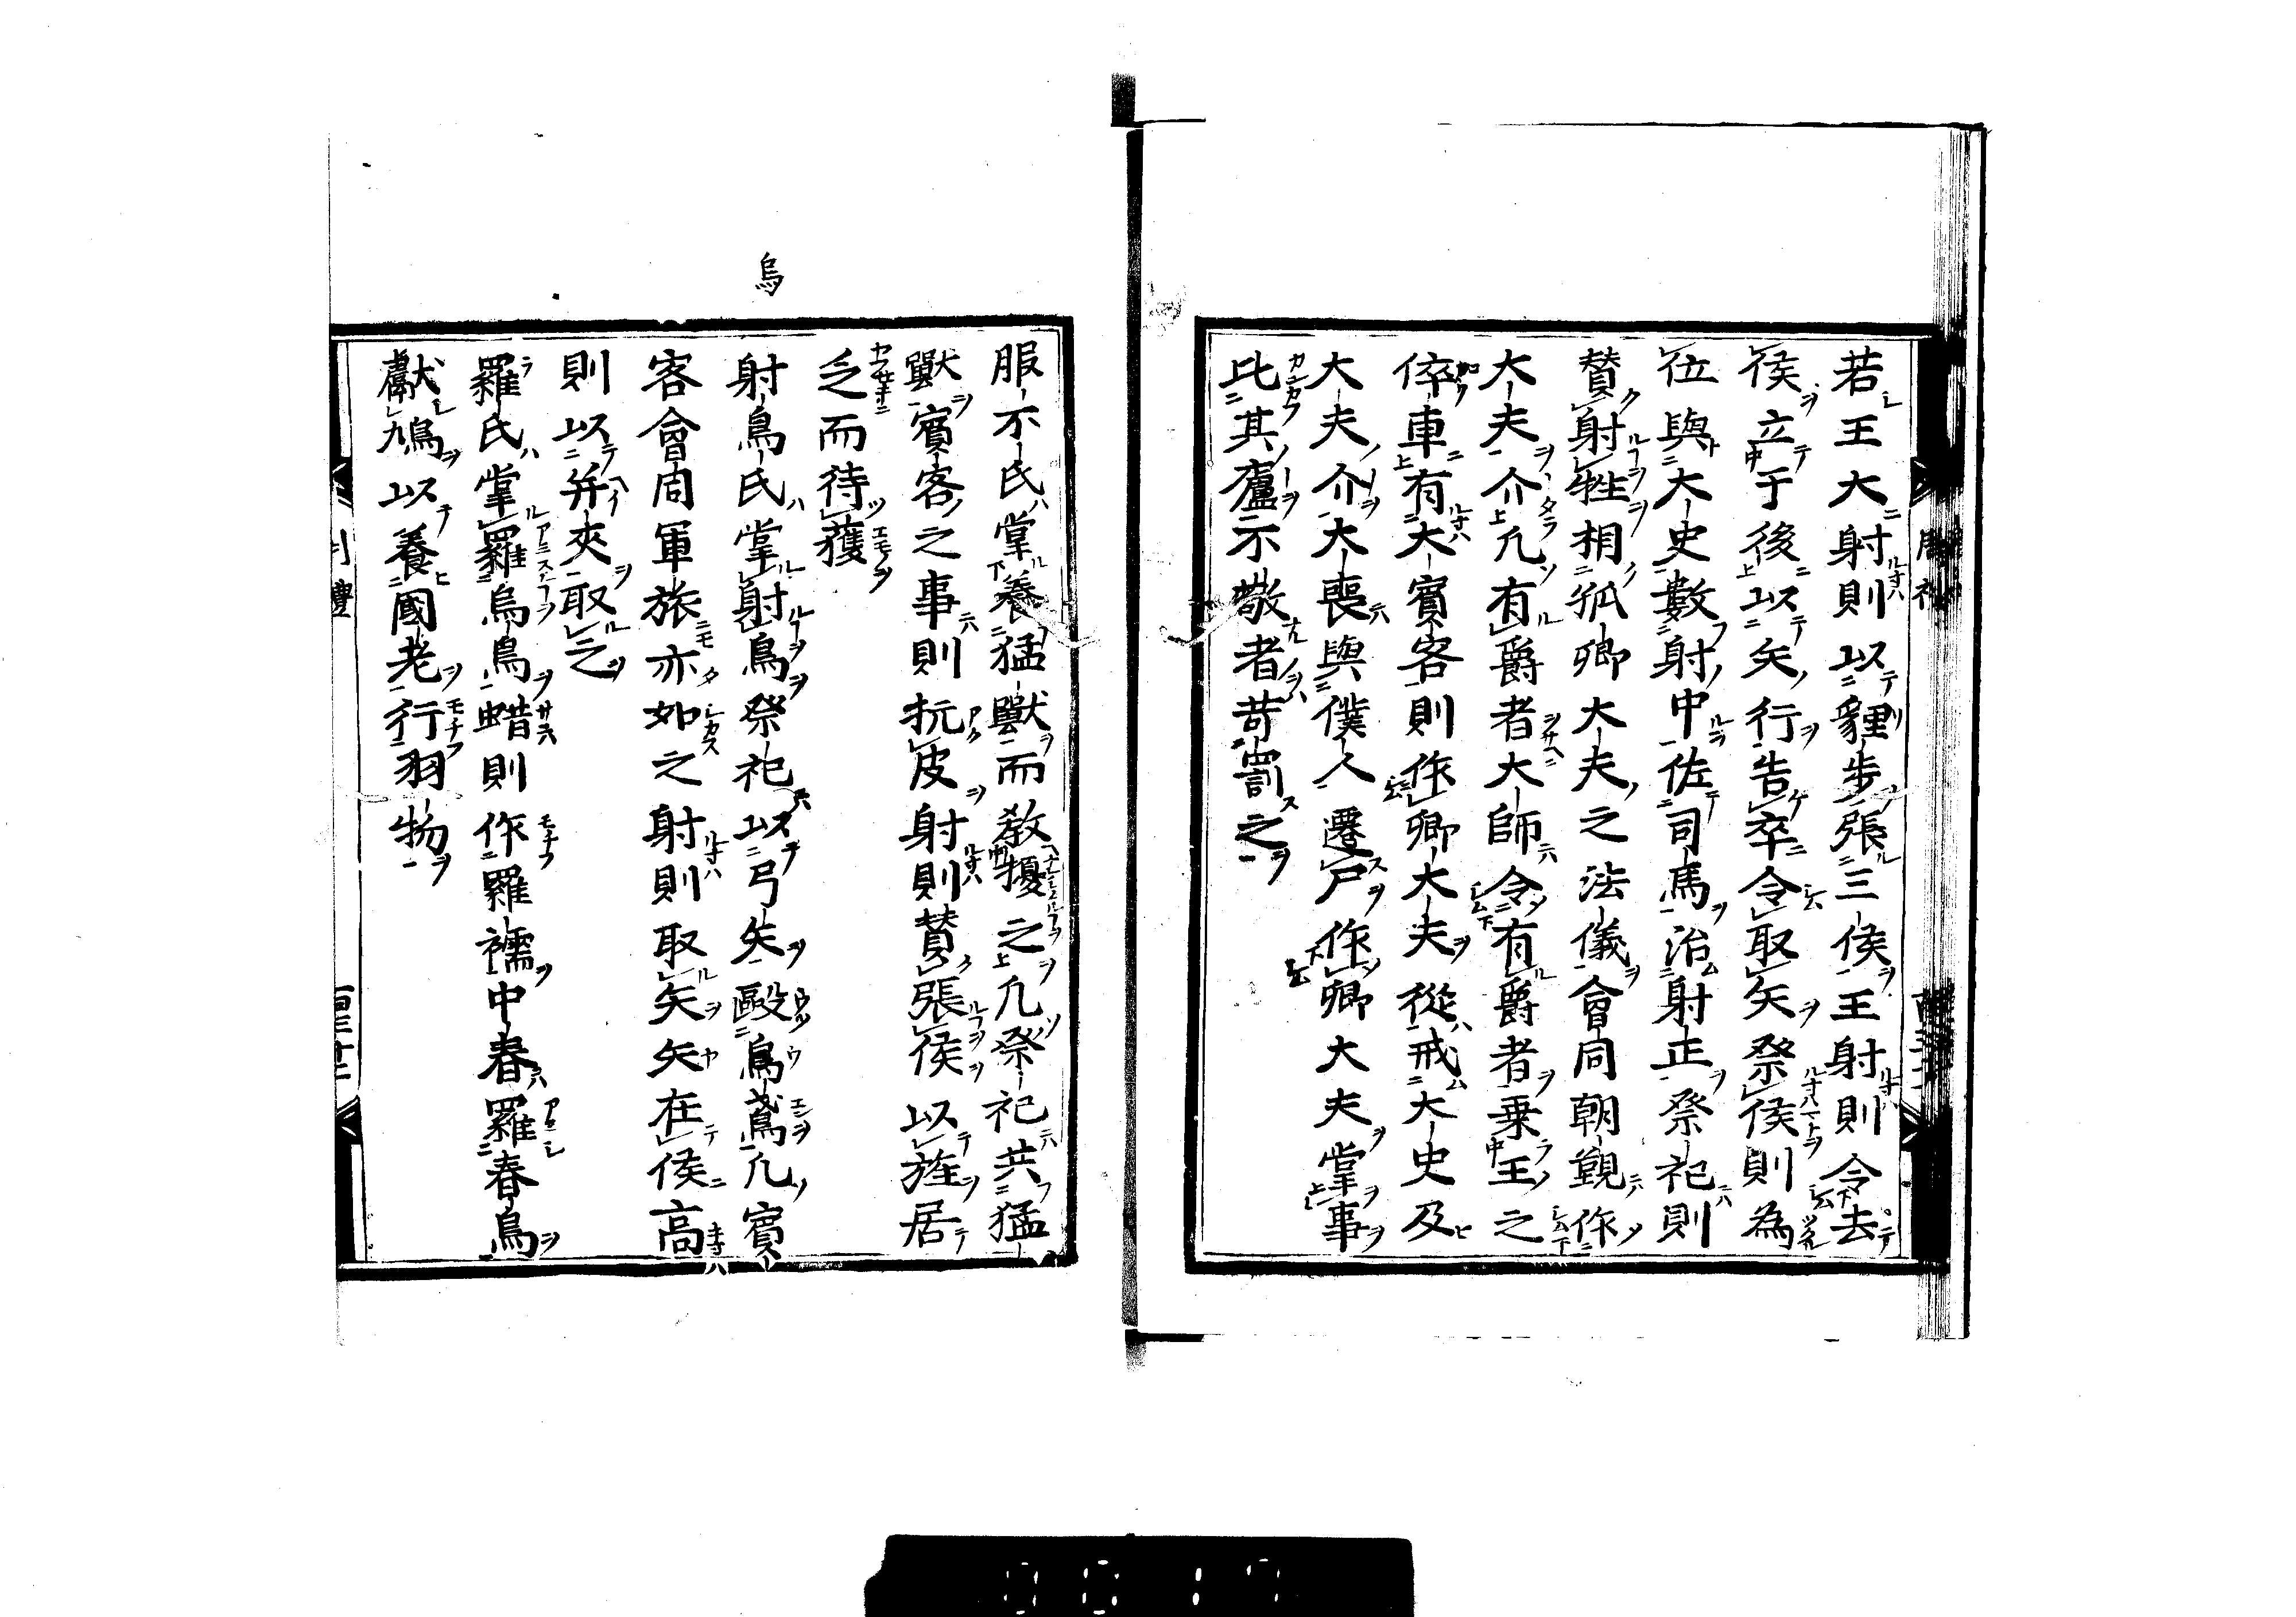 若王大射則以貍歩張三侯王射則令去
侯立于後以矢行告卒令取矢祭侯則為
位與大史數射中佐司馬治射正祭祀則
賛射牲相孤卿大夫之法儀會同朝覲作
大夫介凡有爵者大師令有爵者乗王之
倅車有大賓客則作卿大夫從戒大史及
大夫介大喪與僕人遷尸作卿大夫掌事
比其廬不敬者苛罰之
烏
服不氏掌養猛獸而教擾之凡祭祀共猛
獸賓客之事則抗皮射則賛張侯以旌居
乏而待獲
射鳥氏掌射鳥祭祀以弓矢毆烏鳶凡賓
客會同軍旅亦如之射則取矢矢在侯高
則以并夾取之
羅氏掌羅烏鳥蜡則作羅襦中春羅春鳥
獻鳩以養國老行羽物